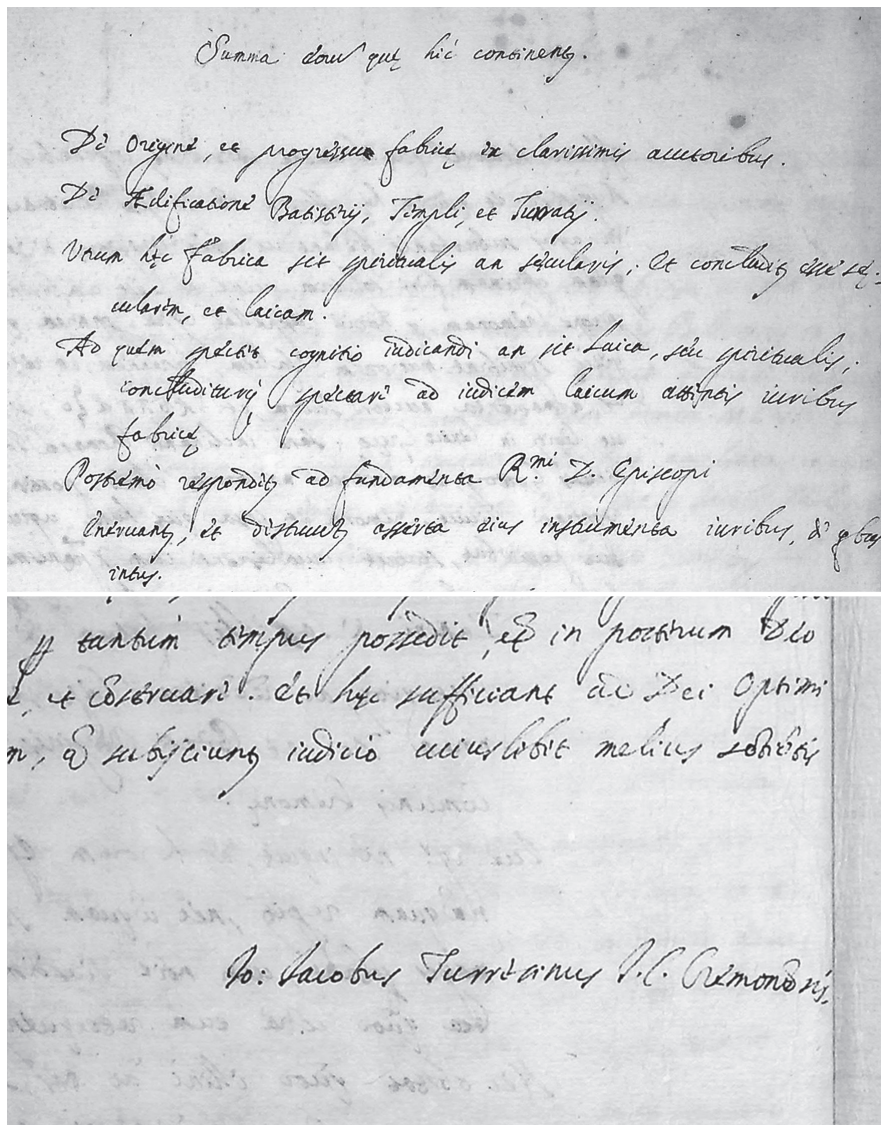 Summa eorum quę hic continentur.
De Origine, et progressu fabricę ex clarissimis auctoribus.
De Ædificatione Batisterij, Templi, et Turratij.
Utrum hęc fabrica sit spiritualis an secularis, et concluditur esse sę-
cularem, et laicam.
Ad quem spectet cognitio iudicandi an sit Laica, seu spiritualis;
concluditurque spectare ad iudicem laicum attentis iuribus
fabricę
Postremò respondetur ad fundamenta R.mi D. Episcopi
enervantur, et destruuntur asserta eius instrumenta iuribus, de quibus
intus.
tantum tempus possedit, et in posterum
et observari. et hęc sufficiant Dei Optimi
et subijciuntur iudicio cuiuslibet melius sentientis
Io: Iacobus Turresinus I. C. Cremonensis.